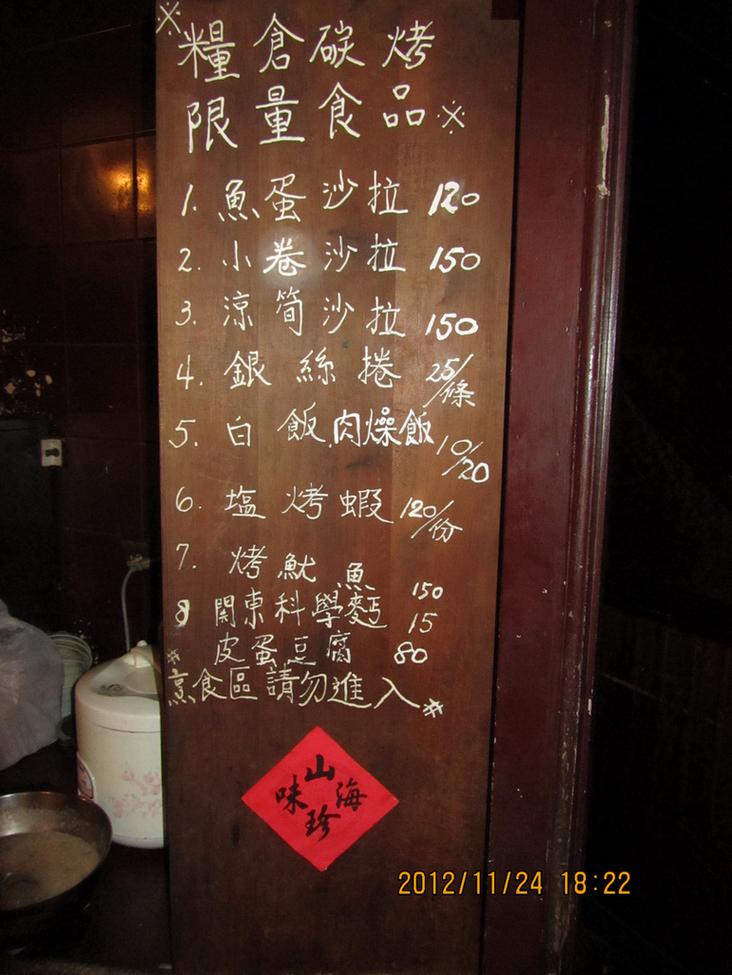 ※糧倉碳烤
限量食品※
1. 魚蛋沙拉 120
2. 小卷沙拉 150
3. 涼筍沙拉 150
4. 銀絲捲 25/條
5. 白飯.肉燥飯 10/20
6. 塩烤蝦 120/份
7. 烤魷魚 150
8 関東科學麵 15
皮蛋豆腐 80
※烹食區請勿進入※
山海
味珍
2012/11/24 18:22